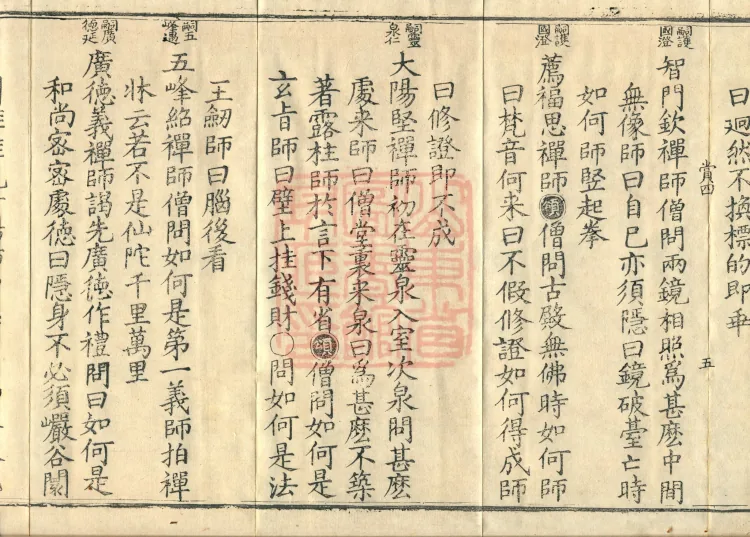 曰迥然不換標的即乖
賞四 五
嗣護國澄
智門欽禪師僧問兩鏡相照爲甚麽中間
無像師曰自己亦須隱曰鏡破臺亡時
如何師竪起拳
嗣護國澄
薦福思禪師頌僧問古殿無佛時如何師
曰梵音何来曰不假修證如何得成師
曰修證即不成
嗣靈泉仁
大陽堅禪師初在靈泉入室次泉問甚麽
處来師曰僧堂裏来泉曰爲甚麽不築
著露柱師於言下有省頌僧問如何是
玄旨師曰壁上挂錢財○問如何是法
王劒師曰腦後看
嗣五峰遇
五峰紹禪師僧問如何是第一義師拍禪
牀云若不是仙陀千里萬里
嗣廣德延
廣德義禪師謁先廣德作禮問曰如何是
和尚密密處德曰隱身不必須巖谷闤